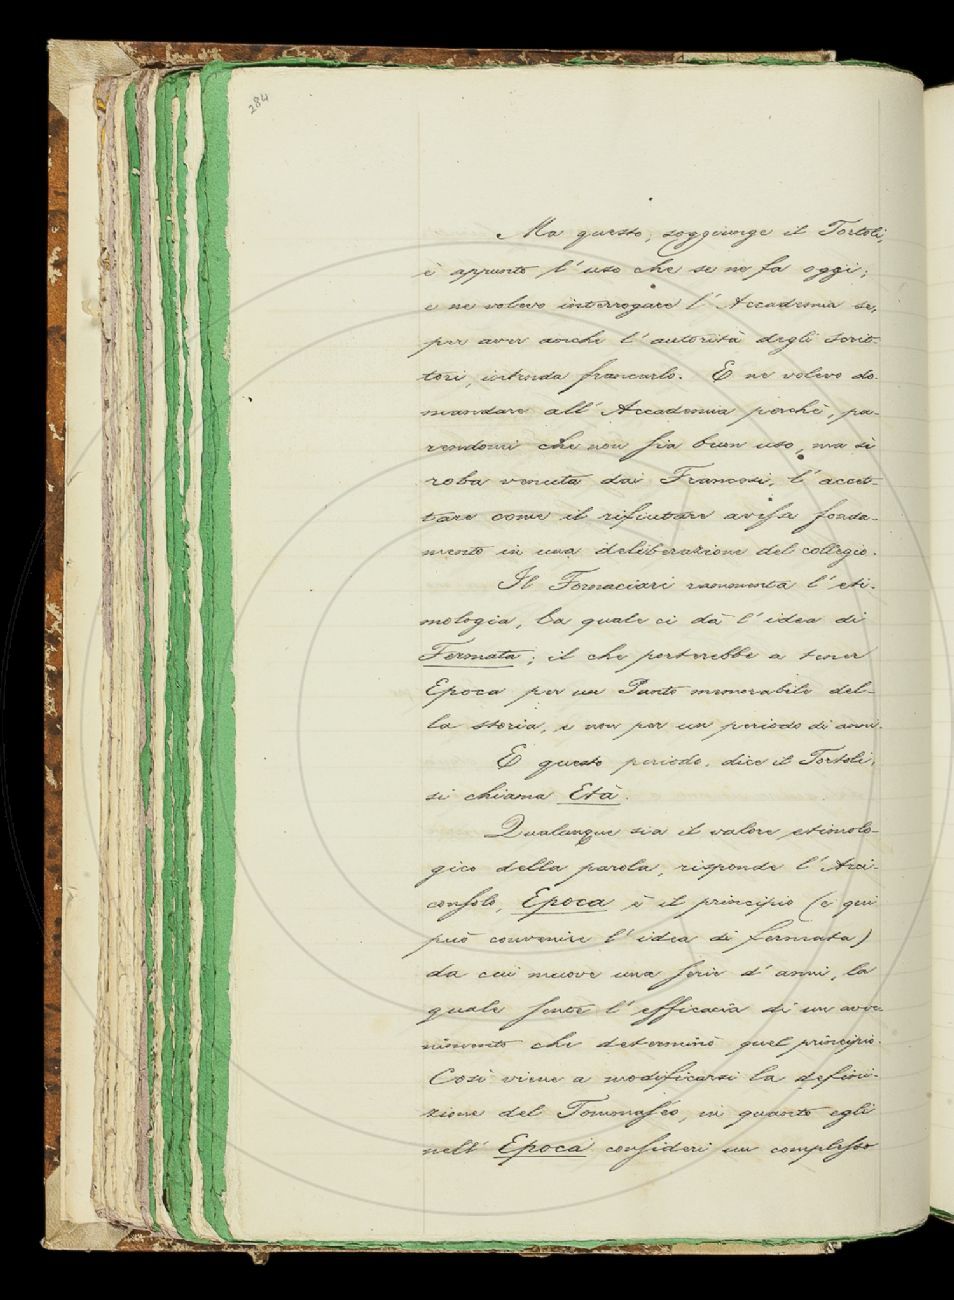 284
Ma questo, soggiunge il Tortoli,
è appunto l'uso che se ne fa oggi;
e ne volevo interrogare l'Accademia se,
per aver anche l'autorità degli scrit-
tori, intenda francarlo. E ne volevo do-
mandare all'Accademia perchè, pa-
rendomi che non sia buon uso, ma sì
roba venuta dai Francesi, l'accet-
tare come il rifiutare avesse fonda-
mento in una deliberazione del collegio.
Il Fornaciari rammenta l'eti-
mologia, la quale ci dà l'idea di
Fermata; il che porterebbe a tener
Epoca per un Punto memorabile del-
la storia, e non per un periodo di anni.
E questo periodo, dice il Tortoli,
si chiama Età.
Qualunque sia il valore etimolo-
gico della parola, risponde l'Arci-
consolo, Epoca è il principio (e qui
può convenire l'idea di fermata)
da cui muove una serie d'anni, la
quale sente l'efficacia di un avve-
nimento che determinò quel principio.
Così viene a modificarsi la defini-
zione del Tommaséo, in quanto egli
nell'Epoca consideri un complesso